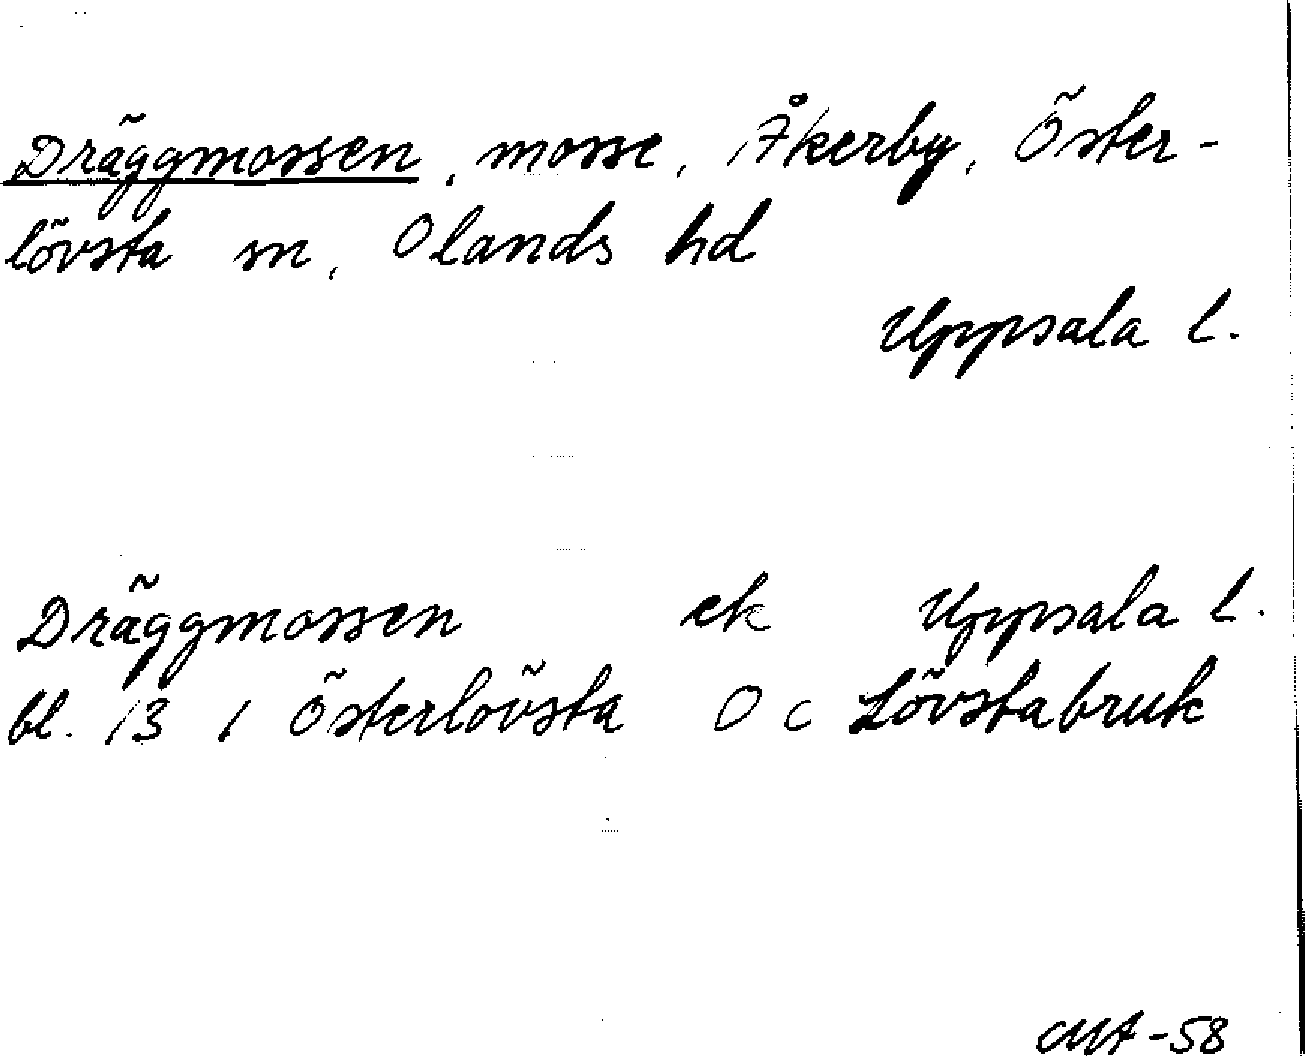 Dräggmossen, mosse, Åkerby, Öster-
lövsta sn, Olands hd
Uppsala l.
Dräggmossen ek Uppsala l.
bl. 13 1 Österlövsta O C Lövstabruk
MA -58